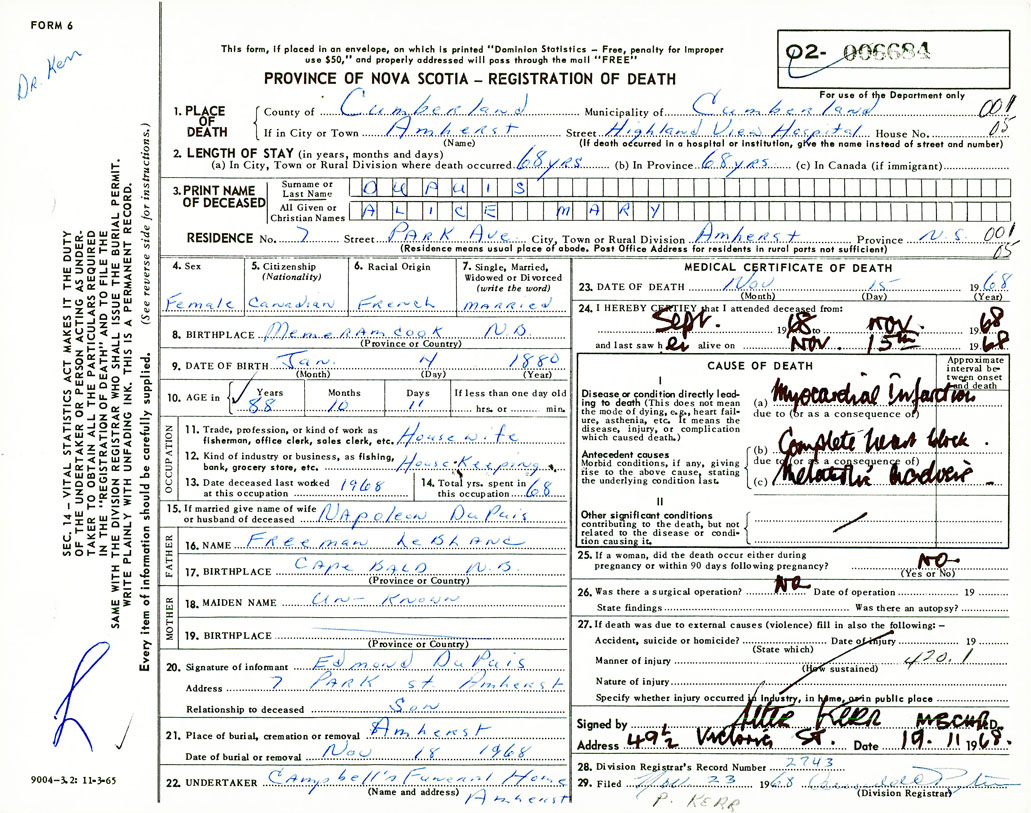 FORM 6
Dr. Kerr
This form, if placed in an envelope, on which is printed "Dominion Statistics – Free, penalty for improper
use $50," and properly addressed will pass through the mail "FREE"
02- 006684
For use of the Department only
PROVINCE OF NOVA SCOTIA – REGISTRATION OF DEATH
1. PLACE OF DEATH
County of Cumberland Municipality of Cumberland 001
If in City or Town Amherst Street Highland View Hospital House No. 05
(Name) (If death occurred in a hospital or institution, give the name instead of street and number)
2. LENGTH OF STAY (in years, months and days)
(a) In City, Town or Rural Division where death occurred 68 yrs (b) In Province 68 yrs (c) In Canada (if immigrant)
3. PRINT NAME OF DECEASED
Surname or Last Name DUPUIS
All Given or Christian Names ALICE MARY
RESIDENCE No. 7 Street PARK Ave City, Town or Rural Division Amherst Province N.S. 001
(Residence means usual place of abode. Post Office Address for residents in rural parts not sufficient) 05
4. Sex
Female
5. Citizenship (Nationality)
Canadian
6. Racial Origin
French
7. Single, Married, Widowed or Divorced (write the word)
married
8. BIRTHPLACE Memeramcook N.B.
(Province or Country)
9. DATE OF BIRTH Jan. 4 1880
(Month) (Day) (Year)
10. AGE in Years Months Days If less than one day old
88 10 11 hrs. or min.
OCCUPATION
11. Trade, profession, or kind of work as
fisherman, office clerk, sales clerk, etc. Housewife
12. Kind of industry or business, as fishing,
bank, grocery store, etc. House Keeping
13. Date deceased last worked
at this occupation 1968
14. Total yrs. spent in
this occupation 68
15. If married give name of wife
or husband of deceased Napoleon DuPuis
FATHER
16. NAME Freeman LeBlanc
17. BIRTHPLACE Cape Bald N.B.
(Province or Country)
MOTHER
18. MAIDEN NAME Un-Known
19. BIRTHPLACE
(Province or Country)
20. Signature of informant Edmond DuPuis
Address 7 PARK st. Amherst
Relationship to deceased Son
21. Place of burial, cremation or removal Amherst
Date of burial or removal Nov 18 1968
22. UNDERTAKER Campbell's Funeral Home
(Name and address) Amherst
MEDICAL CERTIFICATE OF DEATH
23. DATE OF DEATH Nov 15 1968
(Month) (Day) (Year)
24. I HEREBY CERTIFY that I attended deceased from:
Sept. 1968 to Nov. 1968
and last saw her alive on Nov. 15th 1968
CAUSE OF DEATH
Approximate interval between onset and death
I
Disease or condition directly leading to death (This does not mean the mode of dying, e.g., heart failure, asthenia, etc. It means the disease, injury, or complication which caused death.)
(a) Myocardial Infarction
due to (or as a consequence of)
Antecedent causes
Morbid conditions, if any, giving rise to the above cause, stating the underlying condition last.
(b) Complete heart block.
due to (or as a consequence of)
(c)
II
Other significant conditions
contributing to the death, but not related to the disease or condition causing it.
25. If a woman, did the death occur either during
pregnancy or within 90 days following pregnancy? NO
(Yes or No)
26. Was there a surgical operation? No Date of operation 19
State findings Was there an autopsy?
27. If death was due to external causes (violence) fill in also the following: –
Accident, suicide or homicide? Date of injury 19
(State which)
Manner of injury 420.1
(How sustained)
Nature of injury
Specify whether injury occurred in industry, in home, or in public place
Signed by Kerr
Address 49½ Victoria St. Date 19.11 1968.
28. Division Registrar's Record Number 2743
29. Filed Nov 23 1968
(Division Registrar)
P. KERR
SEC. 14 – VITAL STATISTICS ACT MAKES IT THE DUTY
OF THE UNDERTAKER OR PERSON ACTING AS UNDER-
TAKER TO OBTAIN ALL THE PARTICULARS REQUIRED
IN THE "REGISTRATION OF DEATH" AND TO FILE THE
SAME WITH THE DIVISION REGISTRAR WHO SHALL ISSUE THE BURIAL PERMIT.
WRITE PLAINLY WITH UNFADING INK. THIS IS A PERMANENT RECORD.
Every item of information should be carefully supplied. (See reverse side for instructions.)
9004–3.2: 11-3-65